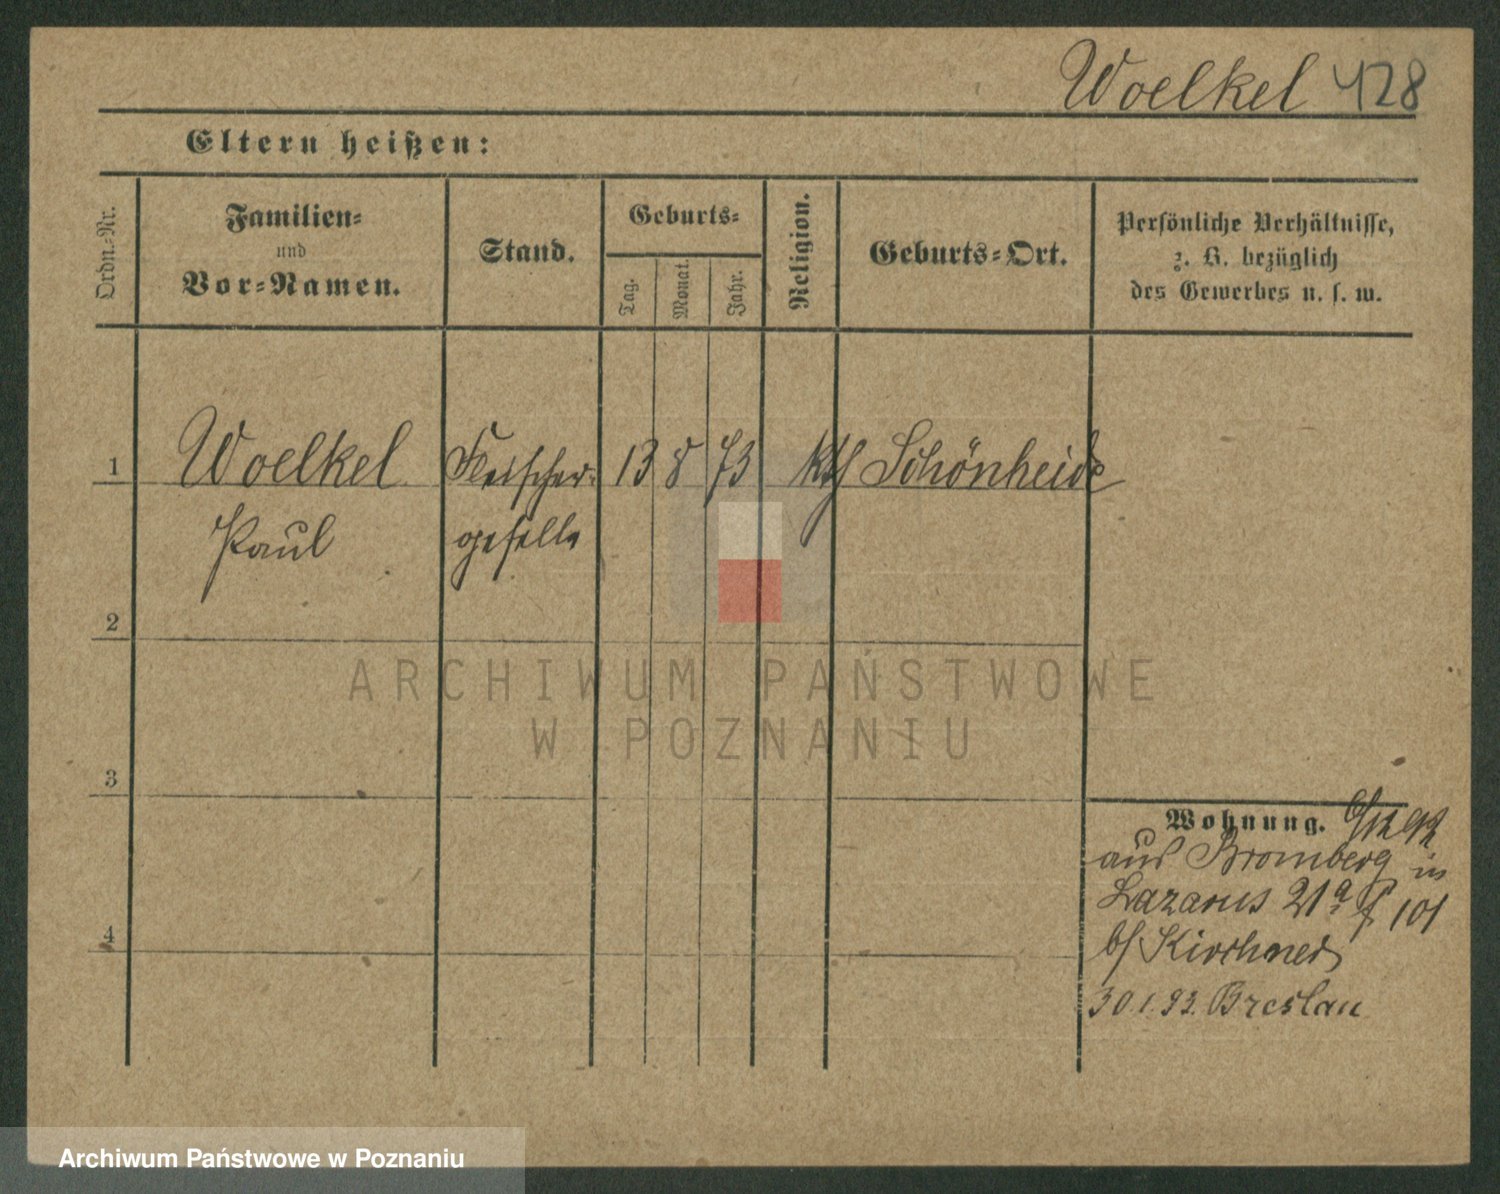 Woelkel 428
Eltern heißen:
Ordn.-Nr.
Familien-
und
Vor-Namen.
Stand.
Geburts-
Tag.
Monat.
Jahr.
Religion.
Geburts-Ort.
Persönliche Verhältnisse,
z. B. bezüglich
des Gewerbes u. s. w.
1 Woelkel Fleischer- 13 8 73 kth Schönheide
Paul geselle
2
3
4
Wohnung. 6/12 92
aus Bromberg in
Lazarus 21a f 101
b/ Kirchner
30.1.93. Breslau
ARCHIWUM PAŃSTWOWE
W POZNANIU
Archiwum Państwowe w Poznaniu